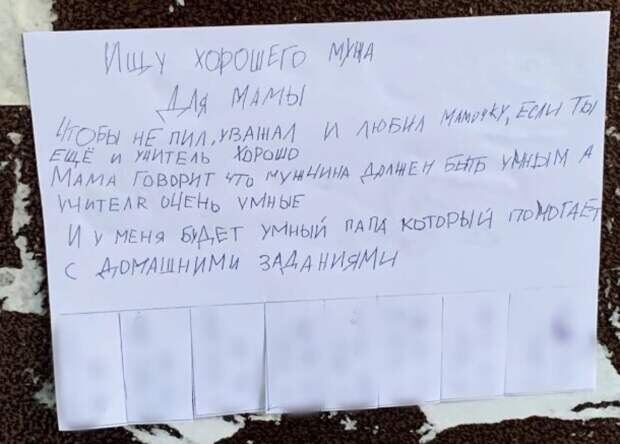 Ищу хорошего мужа
для мамы
Чтобы не пил, уважал и любил мамочку, если ты
ещё и учитель хорошо
Мама говорит что мужчина должен быть умным а
учителя очень умные
И у меня будет умный папа который помогает
с домашними заданиями